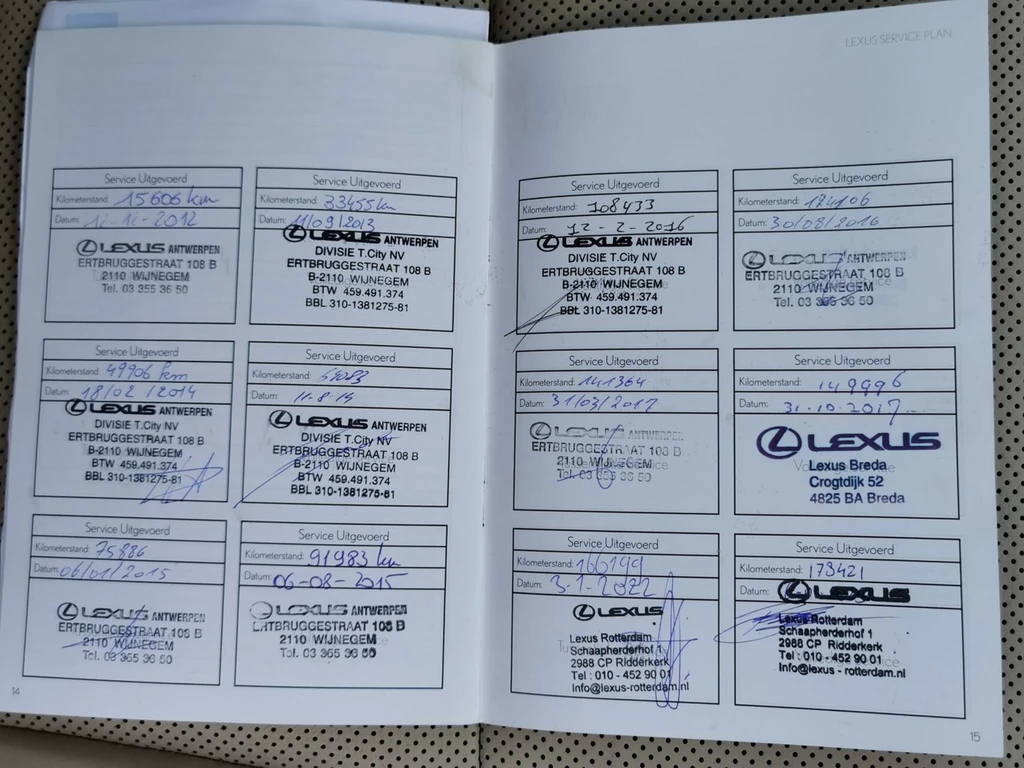 LEXUS SERVICE PLAN
Service Uitgevoerd
Kilometerstand: 15606 km
Datum: 12-12-2012
LEXUS ANTWERPEN
ERTBRUGGESTRAAT 108 B
2110 WIJNEGEM
Tel. 03 355 36 50
Service Uitgevoerd
Kilometerstand: 33455 km
Datum: 11/09/2013
LEXUS ANTWERPEN
DIVISIE T.City NV
ERTBRUGGESTRAAT 108 B
B-2110 WIJNEGEM
BTW 459.491.374
BBL 310-1381275-81
Service Uitgevoerd
Kilometerstand: 49906 km
Datum: 18/02/2014
LEXUS ANTWERPEN
DIVISIE T.City NV
ERTBRUGGESTRAAT 108 B
B-2110 WIJNEGEM
BTW 459.491.374
BBL 310-1381275-81
Service Uitgevoerd
Kilometerstand:
Datum: 11-8-14
LEXUS ANTWERPEN
DIVISIE T.City NV
ERTBRUGGESTRAAT 108 B
B-2110 WIJNEGEM
BTW 459.491.374
BBL 310-1381275-81
Service Uitgevoerd
Kilometerstand: 75886
Datum: 06/01/2015
LEXUS ANTWERPEN
ERTBRUGGESTRAAT 108 B
2110 WIJNEGEM
Tel. 03 355 36 50
Service Uitgevoerd
Kilometerstand: 91983 km
Datum: 06-08-2015
LEXUS ANTWERPEN
ERTBRUGGESTRAAT 108 B
2110 WIJNEGEM
Tel. 03 355 36 50
14
Service Uitgevoerd
Kilometerstand: 108433
Datum: 12-2-2016
LEXUS ANTWERPEN
DIVISIE T.City NV
ERTBRUGGESTRAAT 108 B
B-2110 WIJNEGEM
BTW 459.491.374
BBL 310-1381275-81
Service Uitgevoerd
Kilometerstand: 124106
Datum: 30/08/2016
LEXUS ANTWERPEN
ERTBRUGGESTRAAT 108 B
2110 WIJNEGEM
Tel. 03 355 36 50
Service Uitgevoerd
Kilometerstand: 141364
Datum: 31/03/2017
LEXUS ANTWERPEN
ERTBRUGGESTRAAT 108 B
2110 WIJNEGEM
Tel. 03 355 36 50
Service Uitgevoerd
Kilometerstand: 149996
Datum: 31-10-2017
LEXUS
Lexus Breda
Crogtdijk 52
4825 BA Breda
Service Uitgevoerd
Kilometerstand: 166199
Datum: 3-1-2022
LEXUS
Lexus Rotterdam
Schaapherderhof 1
2988 CP Ridderkerk
Tel : 010 - 452 90 01
Info@lexus-rotterdam.nl
Service Uitgevoerd
Kilometerstand: 173421
Datum:
LEXUS
Lexus Rotterdam
Schaapherderhof 1
2988 CP Ridderkerk
Tel : 010 - 452 90 01
Info@lexus - rotterdam.nl
15